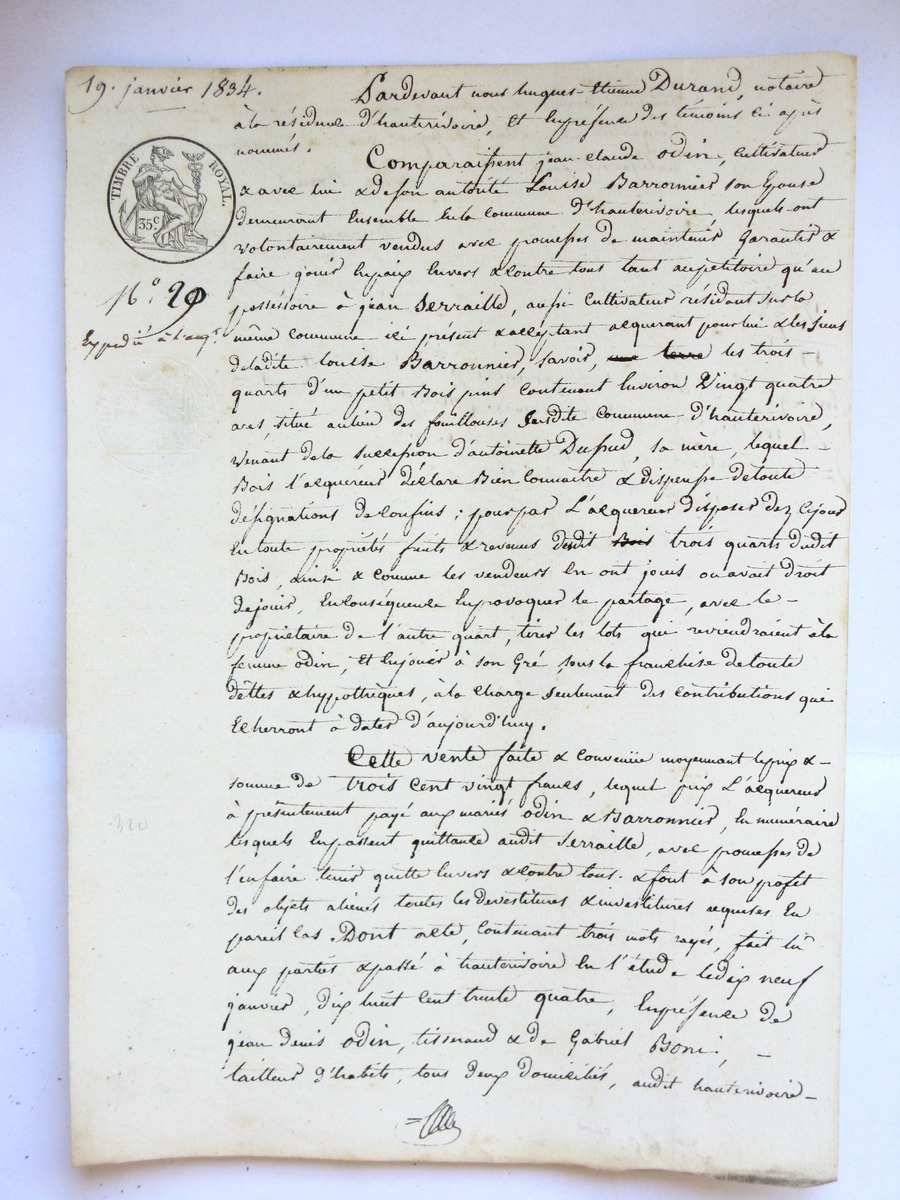 19. janvier 1834.
TIMBRE ROYAL.
35c
No. 29
Expedié à l'acqr.
Pardevant nous hugues-Etienne Durand, notaire
à la résidence d'hauterivoire, et En présence des témoins ci après
nommés.
Comparaissent jean-claude odin, Cultivateur
& avec lui & de son autorité Louise Barronnier son Epouse
demeurant Ensemble En la Commune d'hauterivoire, lesquels ont
volontairement vendus avec promesses de maintenir Garantir &
faire jouir En paix Envers & Contre tous tant au petitoire qu'au
posséssoire à jean Serraille, aussi Cultivateur résidant sur la
même commune ici présent & acceptant acquerant pour lui & les siens
de ladite Louise Barronnier, Savoir, une terre les trois-
quarts d'un petit Bois pins contenant Environ Vingt quatre
ares, situé au lieu des fouillouses susdite Commune d'hauterivoire,
venant de la Succession d'antoinette Dussud, sa mère, lequel-
Bois l'acquéreur déclare Bien Connaitre & dispense de toute
désignations de Confins; pour par L'acquereur disposer dez Cejour
En toute propriétés fruits & revenus desdit Bois trois quarts dudit
Bois, ainsi & comme les vendeurs En ont jouis ou avait droit
de jouir, En Conséquence En provoquer le partage, avec le-
propriétaire de l'autre quart, tirer les lots qui reviendraient à la
femme odin, et En jouir à son Gré, sous la franchise de toute
dettes & hypothèques, à la Charge seulement des Contributions qui
Echerront à dater d'aujourd'huy.
Cette vente faite & Convenüe moyennant le prix &-
somme de trois Cent vingt francs, lequel prix L'acquereur
à présentement payé aux mariés odin & Barronnier, En numéraire
lesquels En passent quittance audit Serraille, avec promesses de
l'en faire tenir quitte Envers & Contre tous. & font à son profit
des objets aliénés toutes les devestitures & investitures requises En
pareil Cas. Dont acte, Contenant trois mots rayés, fait lû
aux parties & passé à hauterivoire En l'étude ledix neuf
janvier, dix huit Cent trente quatre, En présence de
jean denis odin, tisserand & de Gabriel Boni,-
tailleur d'habits, tous deux domiciliés, audit hauterivoire-
320